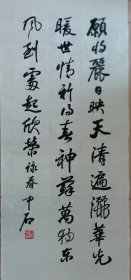 願將麗日映天清遍灑華光
暖世情祈得春神蘇萬物東
風到處起欣榮 詠春 中石